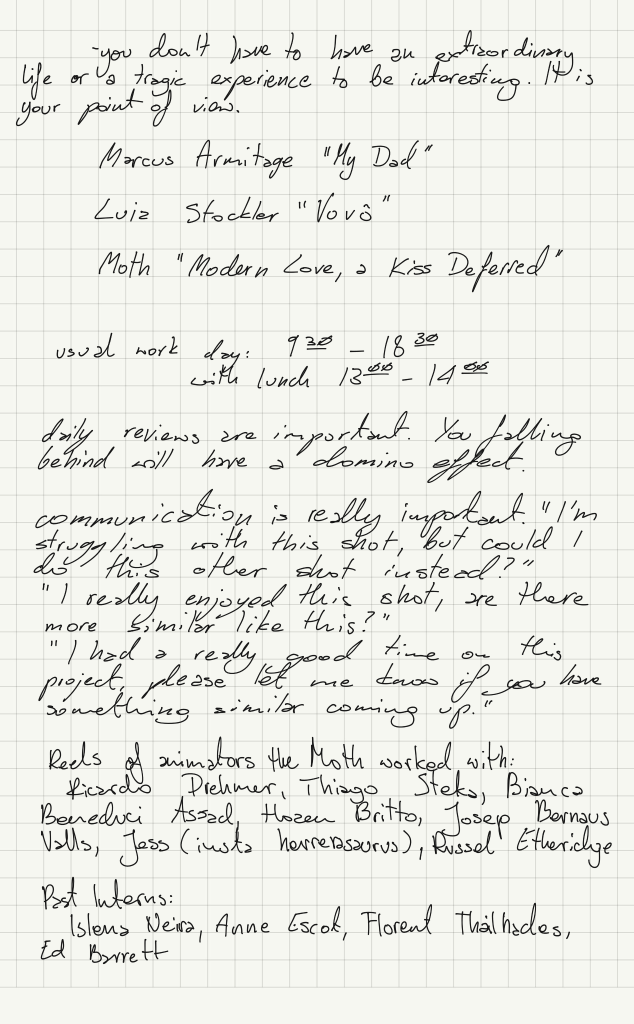 -you don't have to have an extraordinary
life or a tragic experience to be interesting. It is
your point of view.
Marcus Armitage "My Dad"
Luiz Stockler "Vovô"
Moth "Modern Love, a Kiss Deferred"
usual work day: 9 30 – 18 30
with lunch 13 00 – 14 00
daily reviews are important. You falling
behind will have a domino effect.
communication is really important. "I'm
struggling with this shot, but could I
do this other shot instead?"
"I really enjoyed this shot, are there
more similar like this?"
"I had a really good time on this
project, please let me know if you have
something similar coming up."
Reels of animators the Moth worked with:
Ricardo Drehmer, Thiago Steka, Bianca
Beneduci Assad, Hozen Britto, Josep Bernaus
Valls, Jess (insta herrerasaurus), Russel Etheridge
Past Interns:
Islena Neira, Anne Escot, Florent Thailhades,
Ed Barrett